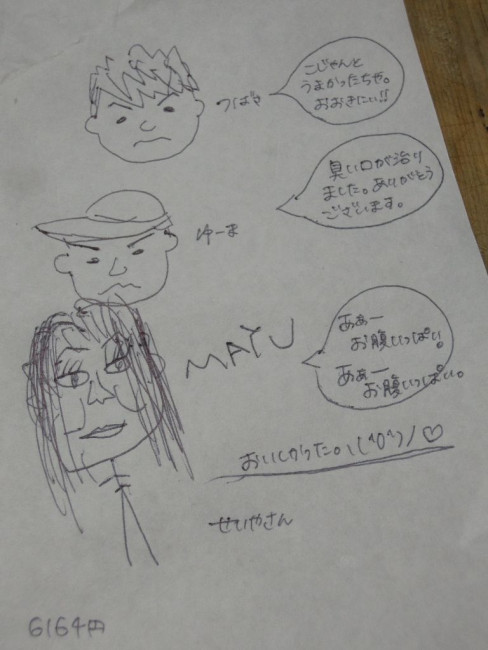 こじゃんと
うまかったちや。
おおきにぃ!!
つばさ
臭い口が治り
ました。ありがとう
ございます。
ゆーま
MAYU
あぁー
お腹いっぱい。
あぁー
お腹いっぱい。
おいしかった。\(^0^)/♡
せいやさん
6164円